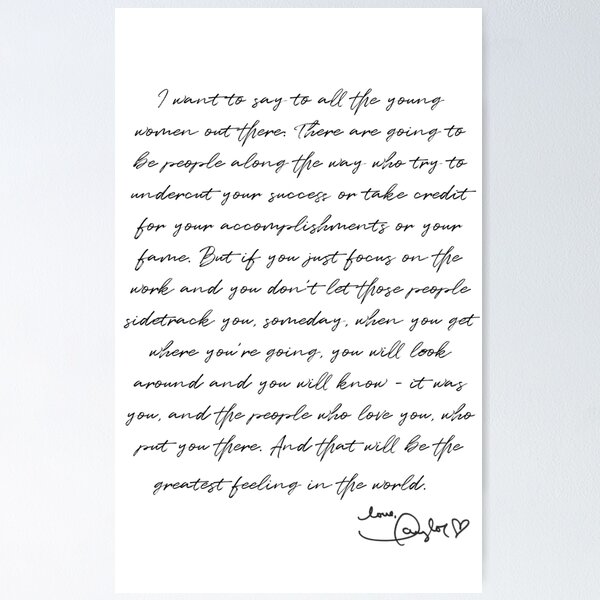 I want to say to all the young
women out there. There are going to
be people along the way who try to
undercut your success or take credit
for your accomplishments or your
fame. But if you just focus on the
work and you don't let those people
sidetrack you, someday, when you get
where you're going, you will look
around and you will know - it was
you, and the people who love you, who
put you there. And that will be the
greatest feeling in the world.
love,
Taylor